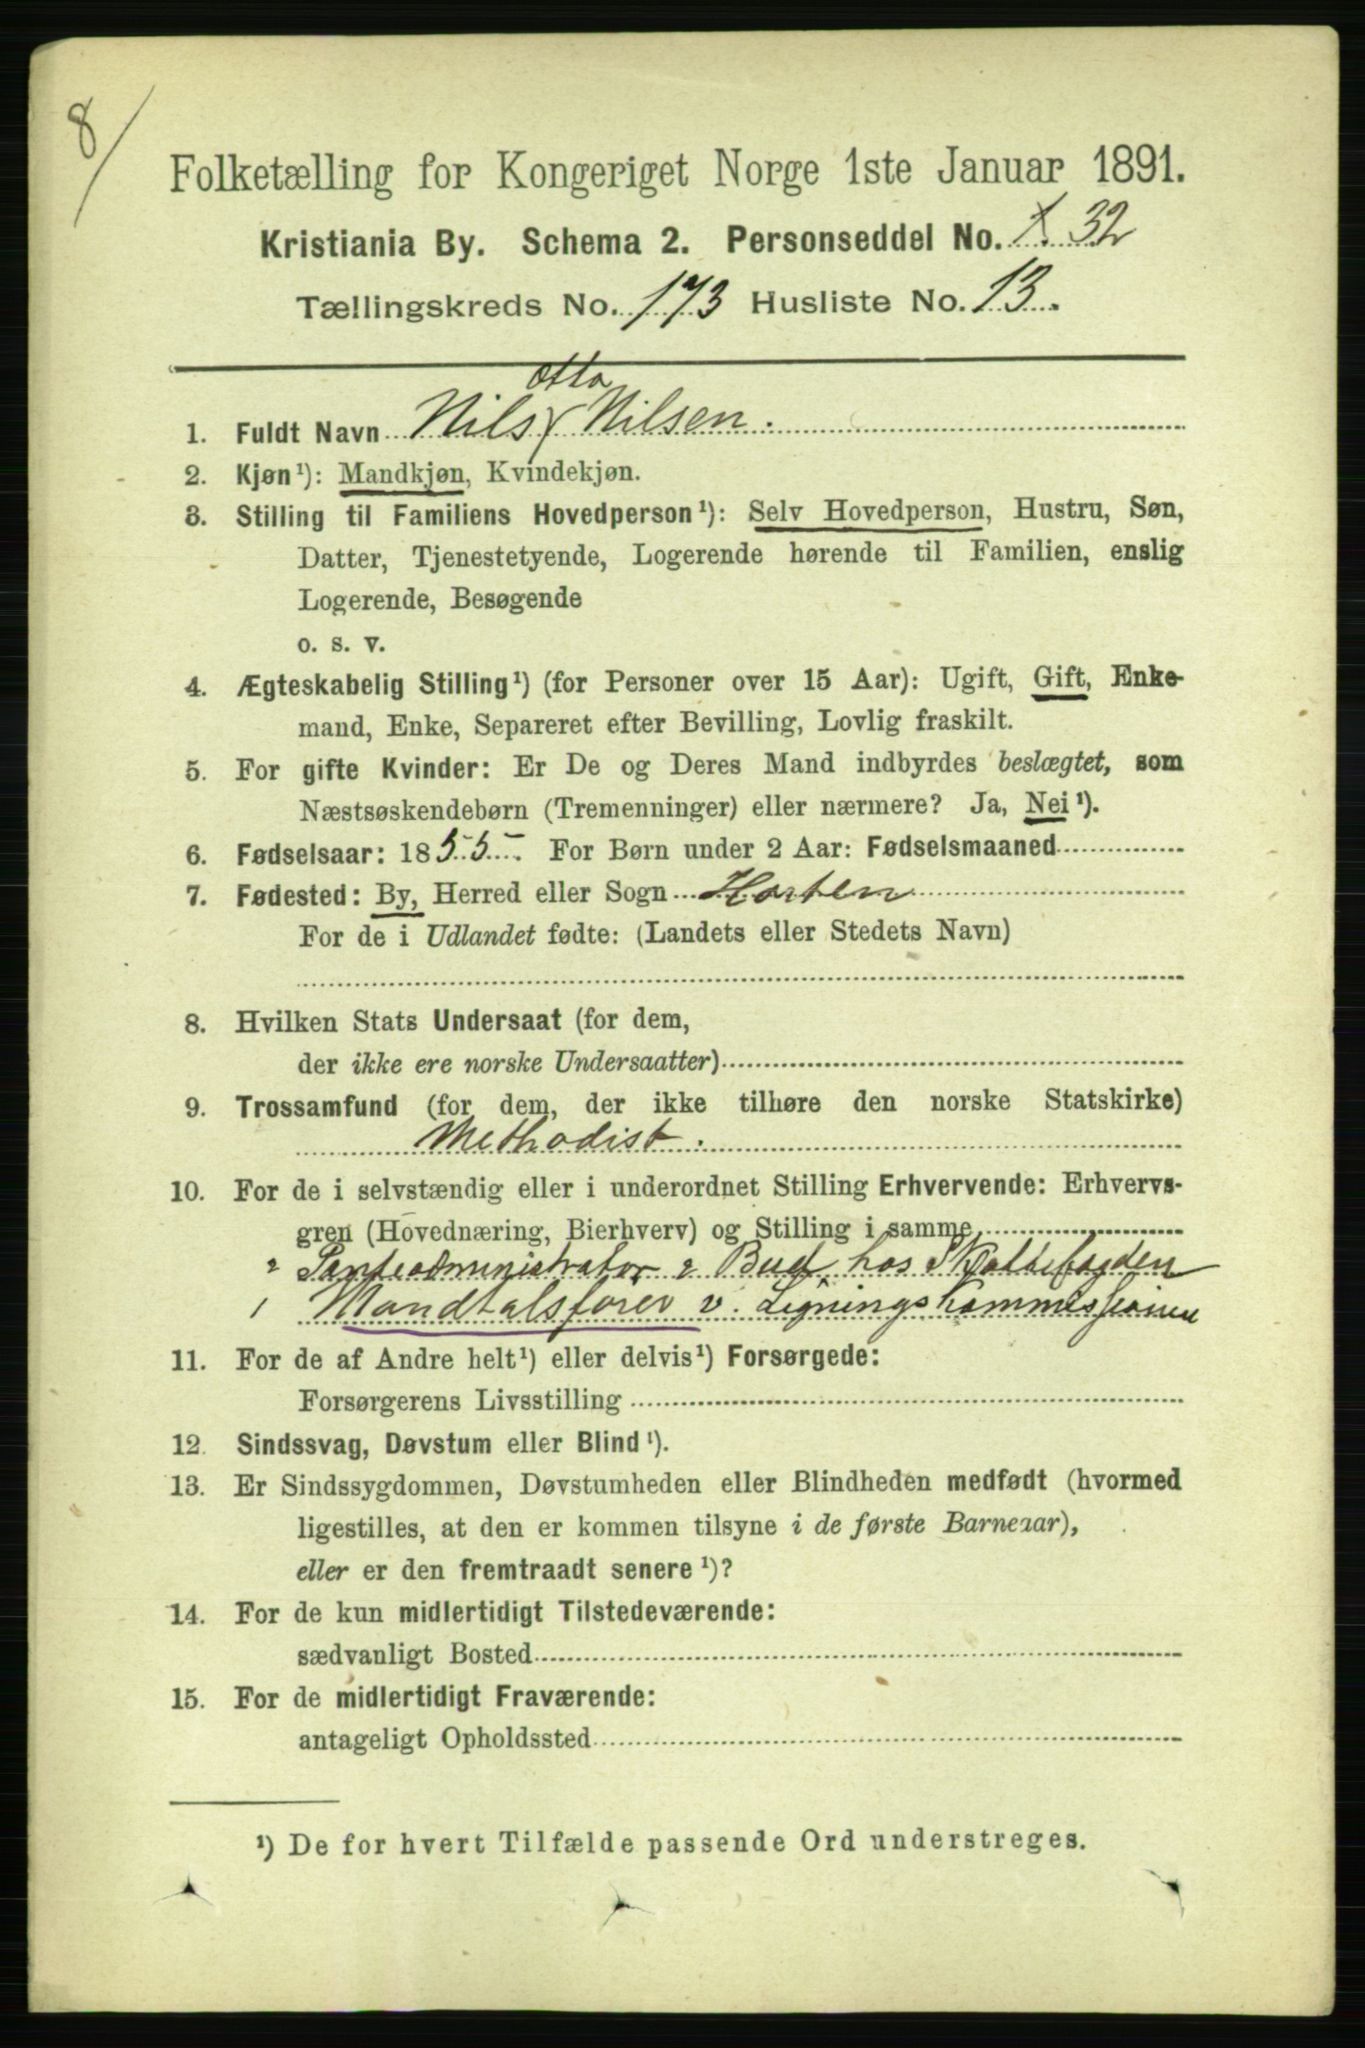 8/
Folketælling for Kongeriget Norge 1ste Januar 1891.
Kristiania By. Schema 2. Personseddel No. 32
Tællingskreds No. 173 Husliste No. 13.
Otto
1. Fuldt Navn Nils Nilsen.
2. Kjøn¹): Mandkjøn, Kvindekjøn.
3. Stilling til Familiens Hovedperson¹): Selv Hovedperson, Hustru, Søn,
Datter, Tjenestetyende, Logerende hørende til Familien, enslig
Logerende, Besøgende
o. s. v.
4. Ægteskabelig Stilling¹) (for Personer over 15 Aar): Ugift, Gift, Enke-
mand, Enke, Separeret efter Bevilling, Lovlig fraskilt.
5. For gifte Kvinder: Er De og Deres Mand indbyrdes beslægtet, som
Næstsøskendebørn (Tremenninger) eller nærmere? Ja, Nei¹).
6. Fødselsaar: 1855. For Børn under 2 Aar: Fødselsmaaned
7. Fødested: By, Herred eller Sogn Horten
For de i Udlandet fødte: (Landets eller Stedets Navn)
8. Hvilken Stats Undersaat (for dem,
der ikke ere norske Undersaatter)
9. Trossamfund (for dem, der ikke tilhøre den norske Statskirke)
Methodist.
10. For de i selvstændig eller i underordnet Stilling Erhvervende: Erhvervs-
gren (Hovednæring, Bierhverv) og Stilling i samme
2 Panteadministrator 2 Bud hos Skattefogden
1 Mandtalsfører v. Ligningskommissionen
11. For de af Andre helt¹) eller delvis¹) Forsørgede:
Forsørgerens Livsstilling
12. Sindssvag, Døvstum eller Blind¹).
13. Er Sindssygdommen, Døvstumheden eller Blindheden medfødt (hvormed
ligestilles, at den er kommen tilsyne i de første Barneaar),
eller er den fremtraadt senere¹)?
14. For de kun midlertidigt Tilstedeværende:
sædvanligt Bosted
15. For de midlertidigt Fraværende:
antageligt Opholdssted
¹) De for hvert Tilfælde passende Ord understreges.